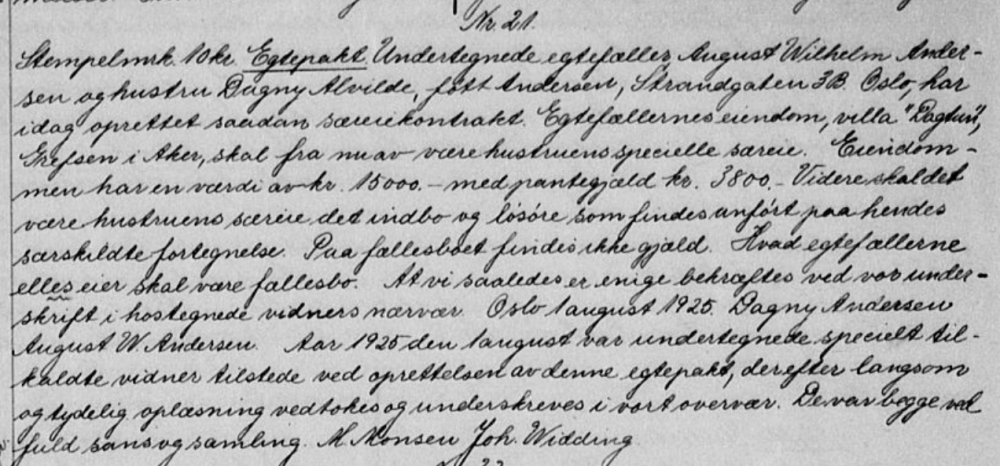 Nr. 21.
Stempelmrk. 10 kr. Egtepakt. Undertegnede egtefæller, August Wilhelm Ander-
sen og hustru Dagny Alvilde, født Andersen, Strandgaten 3B. Oslo, har
idag oprettet saadan særeiekontrakt. Egtefællernes eiendom, villa "Dagtun",
Grefsen i Aker, skal fra nu av være hustruens specielle særeie. Eiendom-
men har en værdi av kr. 15000.- med pantegjæld kr. 3800.- Videre skal det
være hustruens særeie det indbo og løsøre som findes anført paa hendes
særskildte fortegnelse. Paa fællesboet findes ikke gjæld. Hvad egtefællerne
elles eier skal være fællesbo. At vi saaledes er enige bekræftes ved vor under-
skrift i hostegnede vidners nærvær. Oslo 1 august 1925. Dagny Andersen
August W. Andersen. Aar 1925 den 1 august var undertegnede specielt til-
kaldte vidner tilstede ved oprettelsen av denne egtepakt, der efter langsom
og tydelig oplæsning vedtokes og underskreves i vort overvær. De var begge ved
fuld sans og samling. M. Monsen Joh. Widding